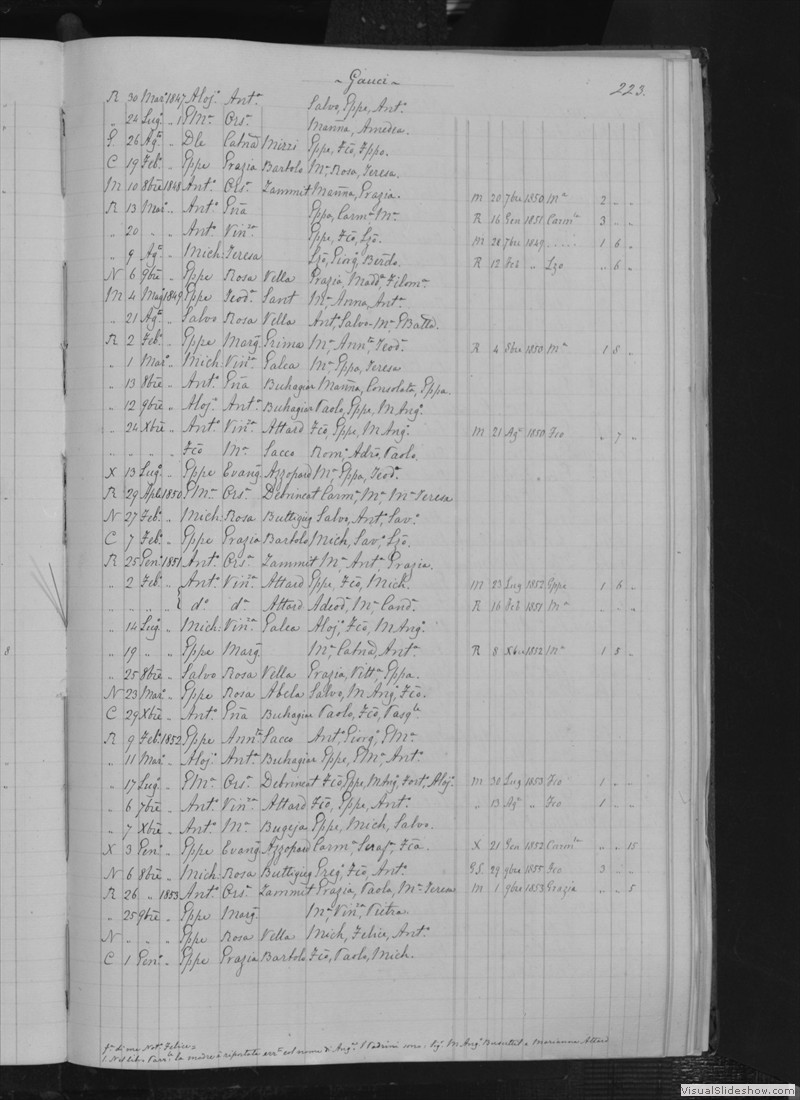 - Gauci -
223.
R 30 Mar. 1847 Aloj. Anta. Salvo, Eppe, Anto.
" 24 Lug. " Crs. Manna, Amedea.
G. 26 Ago. " Dle Catna Mizzi Eppe, Fco, Fppo.
C 19 Feb. " Eppe Grazia Bartolo Ma. Rosa, Teresa.
M 10 8bre 1848 Anto. Crs. Zammit Manna, Grazia. M 20 7bre 1850 Ma 2 " "
R 13 Mar. " Anto. Gna Eppa, Carma. Ma. R 16 Gen 1851 Carmla 3 " "
" 20 " " Anto. Vinza Eppe, Fco, Lzo. M 28 7bre 1849 .... 1 6 "
" 9 Ago. " Mich: Teresa Lzo, Giorg, Berdo. R 12 Feb " Lzo " 6 "
N 6 9bre " Eppe Rosa Vella Grazia, Madda, Filoma.
M 4 Mag 1849 Eppe Teoda. Sant Ma. Anna, Anta.
" 21 Ago. " Salvo Rosa Vella Anto, Salvo Ma. GBatta.
R 2 Feb. " Eppe Marg. Grima Ma. Anna, Teod. R 4 8bre 1850 Ma 1 8 "
" 1 Mar. " Mich: Vinza Galea Ma. Eppa, Teresa
" 13 8bre " Anto. Gna Buhagiar Manna, Consolata, Eppa.
" 12 9bre " Aloj. Anta. Buhagiar Paolo, Eppe, M Ang.
" 24 Xbre " Anto. Vinza Attard Fco, Eppe, M Ang. M 21 Ago 1850 Fco " 7 "
" " " " Fco Ma. Sacco Rom, Adro, Paolo.
X 13 Lug. " Eppe Evang. Azzopard Ma. Eppa, Teod.
R 29 Aple 1850 Crs. Debrincat Carma, Ma. Ma. Teresa
N 27 Feb. " Mich: Rosa Buttigieg Salvo, Anto, Sav.
C 7 Feb. " Eppe Grazia Bartolo Mich, Sav. Lzo.
R 25 Gen. 1851 Anto. Crs. Zammit Ma. Anta. Grazia.
" 2 Feb. " Anto. Vinza Attard Eppe, Fco, Mich. M 23 Lug 1852 Eppe 1 6 "
" " " " do. do. Attard Adeod, Ma. Cand. R 16 Feb 1851 Ma " " "
" 14 Lug. " Mich: Vinza Galea Aloj. Fco, M Ang.
" 19 " " Eppe Marg. Ma. Catna, Anta. R 8 Xbre 1852 Ma 1 5 "
" 25 8bre " Salvo Rosa Vella Grazia, Vitta, Eppa.
N 23 Mar. " Eppe Rosa Abela Salvo, M Ang. Fco.
C 29 Xbre " Anto. Gna Buhagiar Paolo, Fco, Pasqle
R 9 Feb. 1852 Eppe Anna Sacco Anto, Giorg.
" 11 Mar. " Aloj. Anta. Buhagiar Eppe, Anto.
" 17 Lug. " Crs. Debrincat Fco Eppe, M Ang. Fort. Aloj. M 30 Lug 1853 Fco 1 " "
" 6 7bre " Anto. Vinza Attard Fco, Eppe, Anto. " 13 Ago " Fco 1 " "
" 7 Xbre " Anto. Ma. Bugeja Eppe, Mich, Salvo.
X 3 Gen. " Eppe Evang. Azzopard Carma. Seraf. Fca. X 21 Gen 1852 Carmla " " 15
N 6 8bre " Mich: Rosa Buttigieg Greg. Fco, Anto. GS. 29 9bre 1855 Fco 3 " "
R 26 " 1853 Anto. Crs. Zammit Grazia, Paola, Ma. Teresa M 1 9bre 1853 Grazia " " 5
" 25 9bre " Eppe Marg. Ma. Vinza, Pietra.
N " " " Eppe Rosa Vella Mich, Felice, Anto.
C 1 Gen. " Eppe Grazia Bartolo Fco, Paolo, Mich.
Not. Felice
la madre è riportata col nome di Ang. Padrini M. Ang. e Marianna Attard
8
VisualSlideshow.com